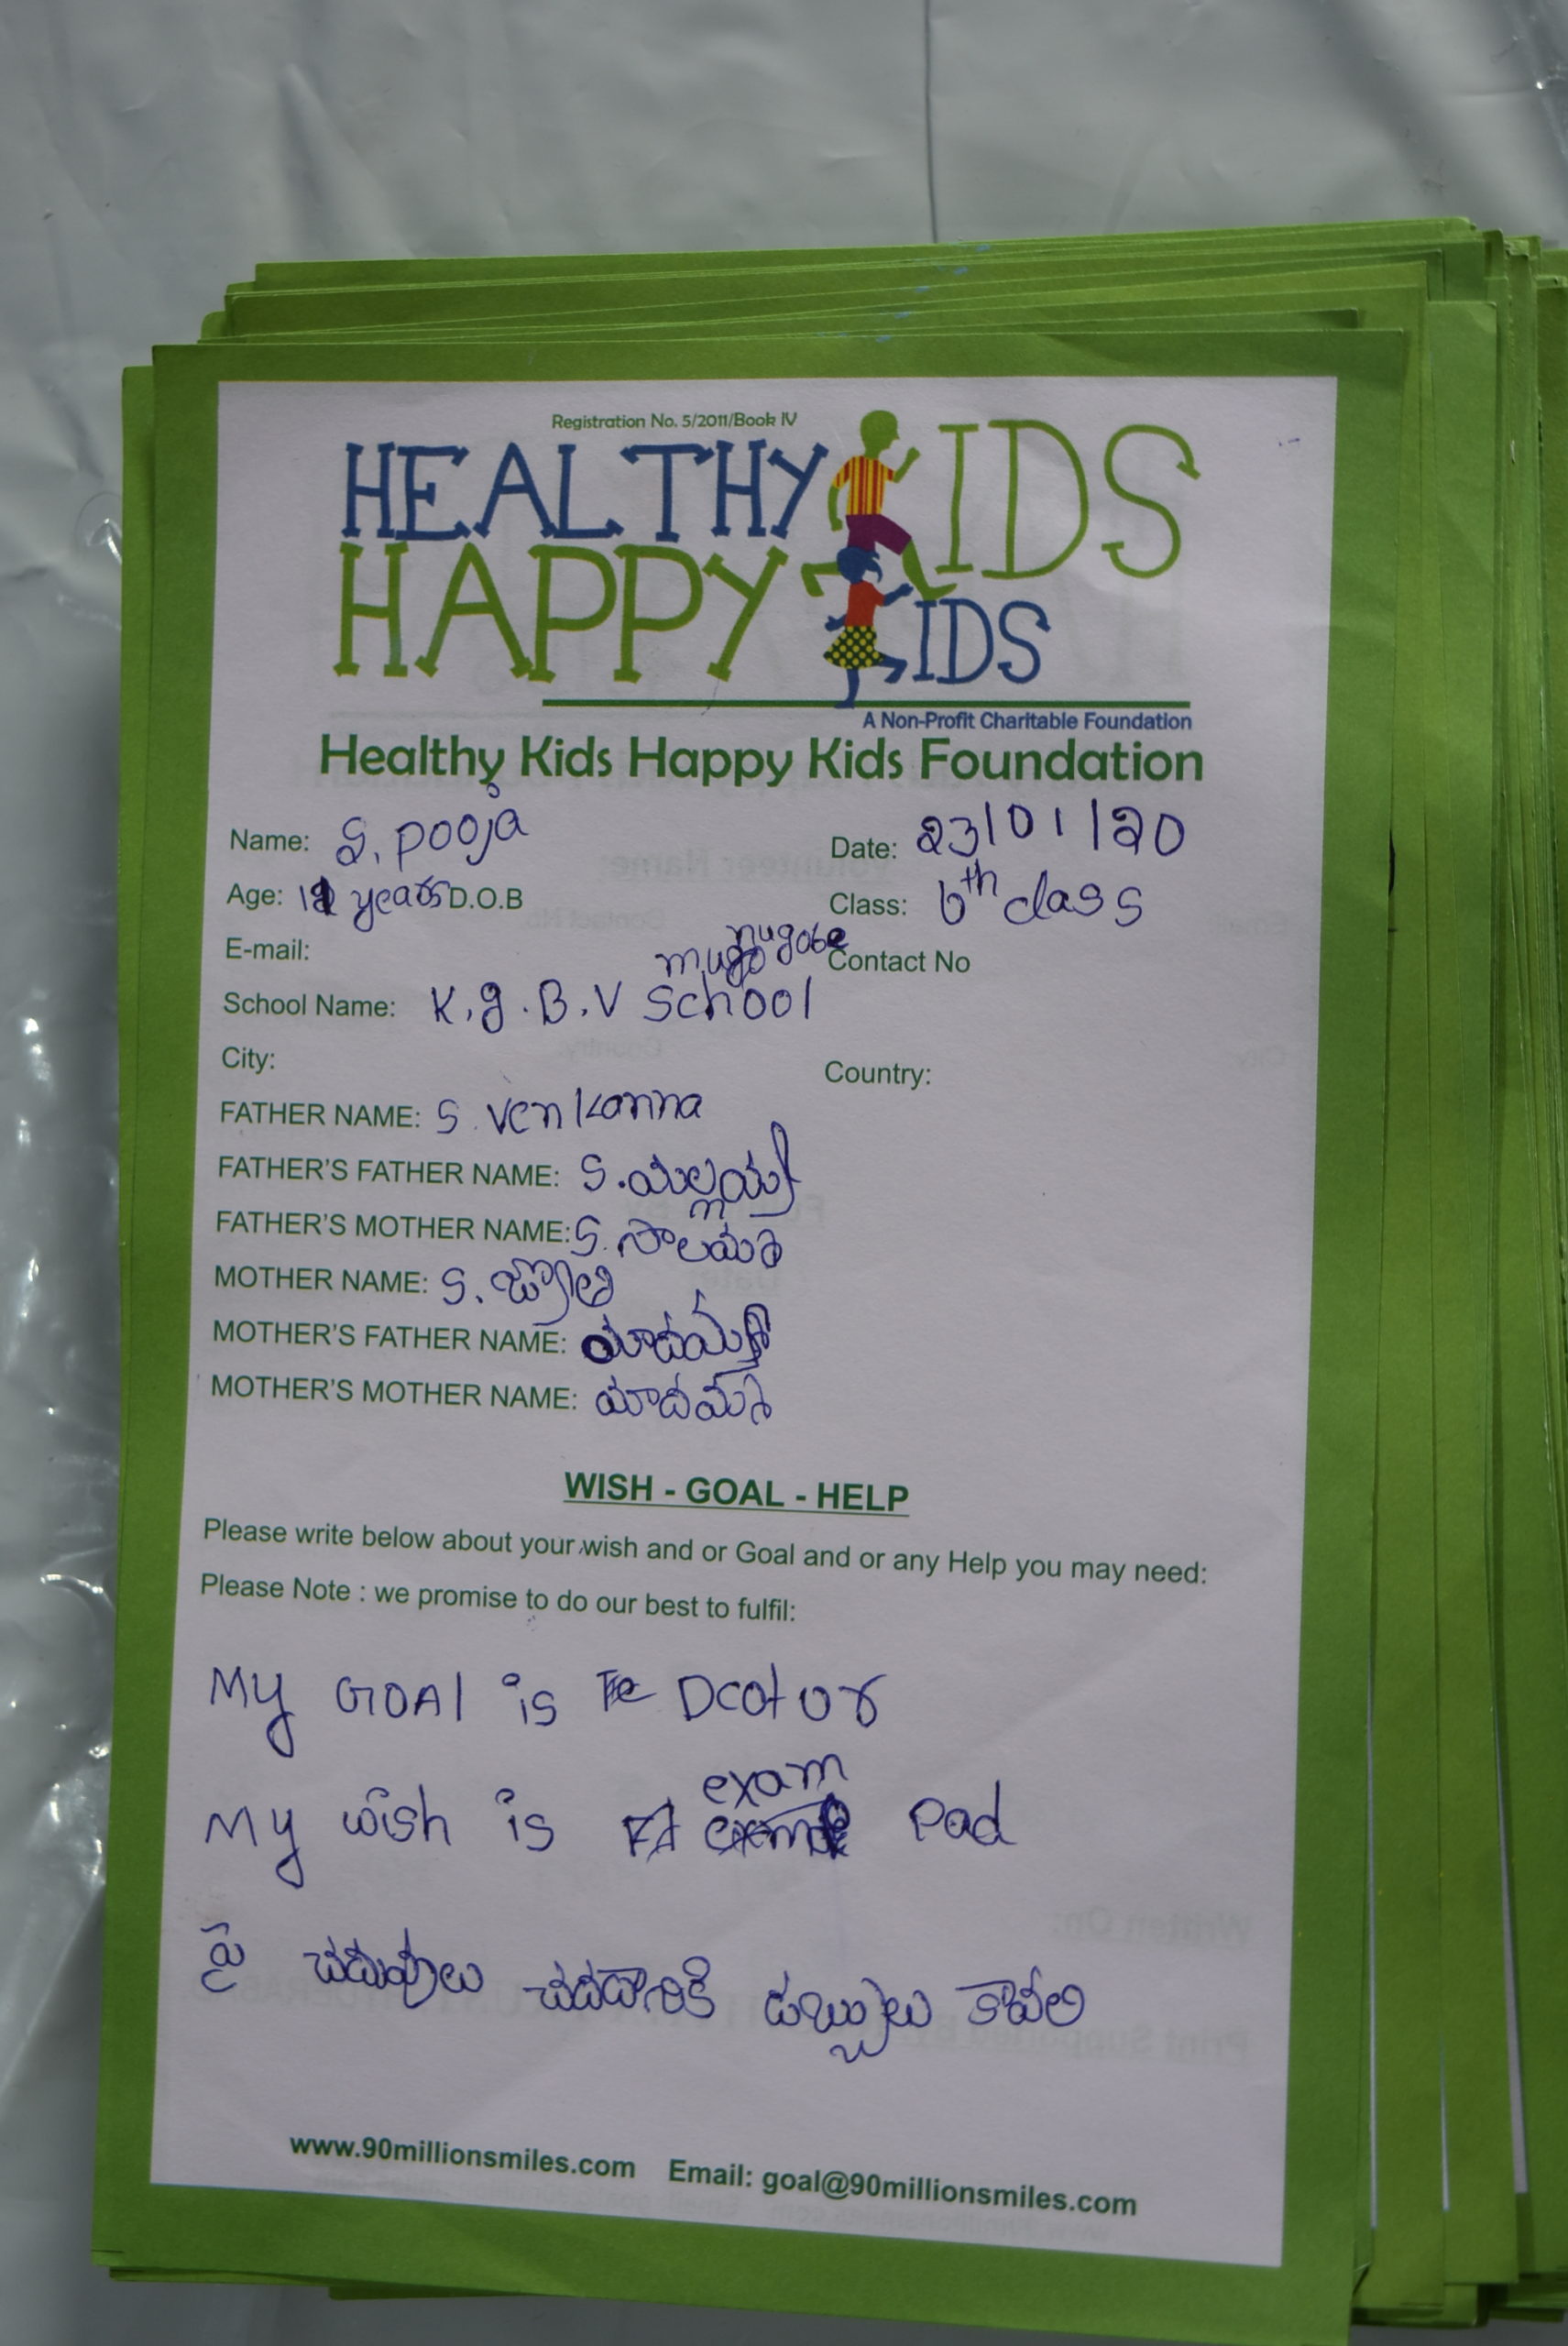 Registration No. 5/2011/Book IV
HEALTHY KIDS
HAPPY KIDS
A Non-Profit Charitable Foundation
Healthy Kids Happy Kids Foundation
Name: S. pooja Date: 23/01/20
Age: 11 years D.O.B Class: 6th class
E-mail: Contact No
School Name: K.g.B.V School
City: Country:
FATHER NAME: S. Venkanna
FATHER'S FATHER NAME: S. యల్లయ్య
FATHER'S MOTHER NAME: S. సాలమ్మ
MOTHER NAME: S. జ్యోతి
MOTHER'S FATHER NAME:
MOTHER'S MOTHER NAME: యాదమ్మ
WISH - GOAL - HELP
Please write below about your wish and or Goal and or any Help you may need:
Please Note : we promise to do our best to fulfil:
My GOAl is Dcotor
exam
My wish is Pad
పై చదువులు చదదానికి డబ్బులు కావలి
www.90millionsmiles.com Email: goal@90millionsmiles.com